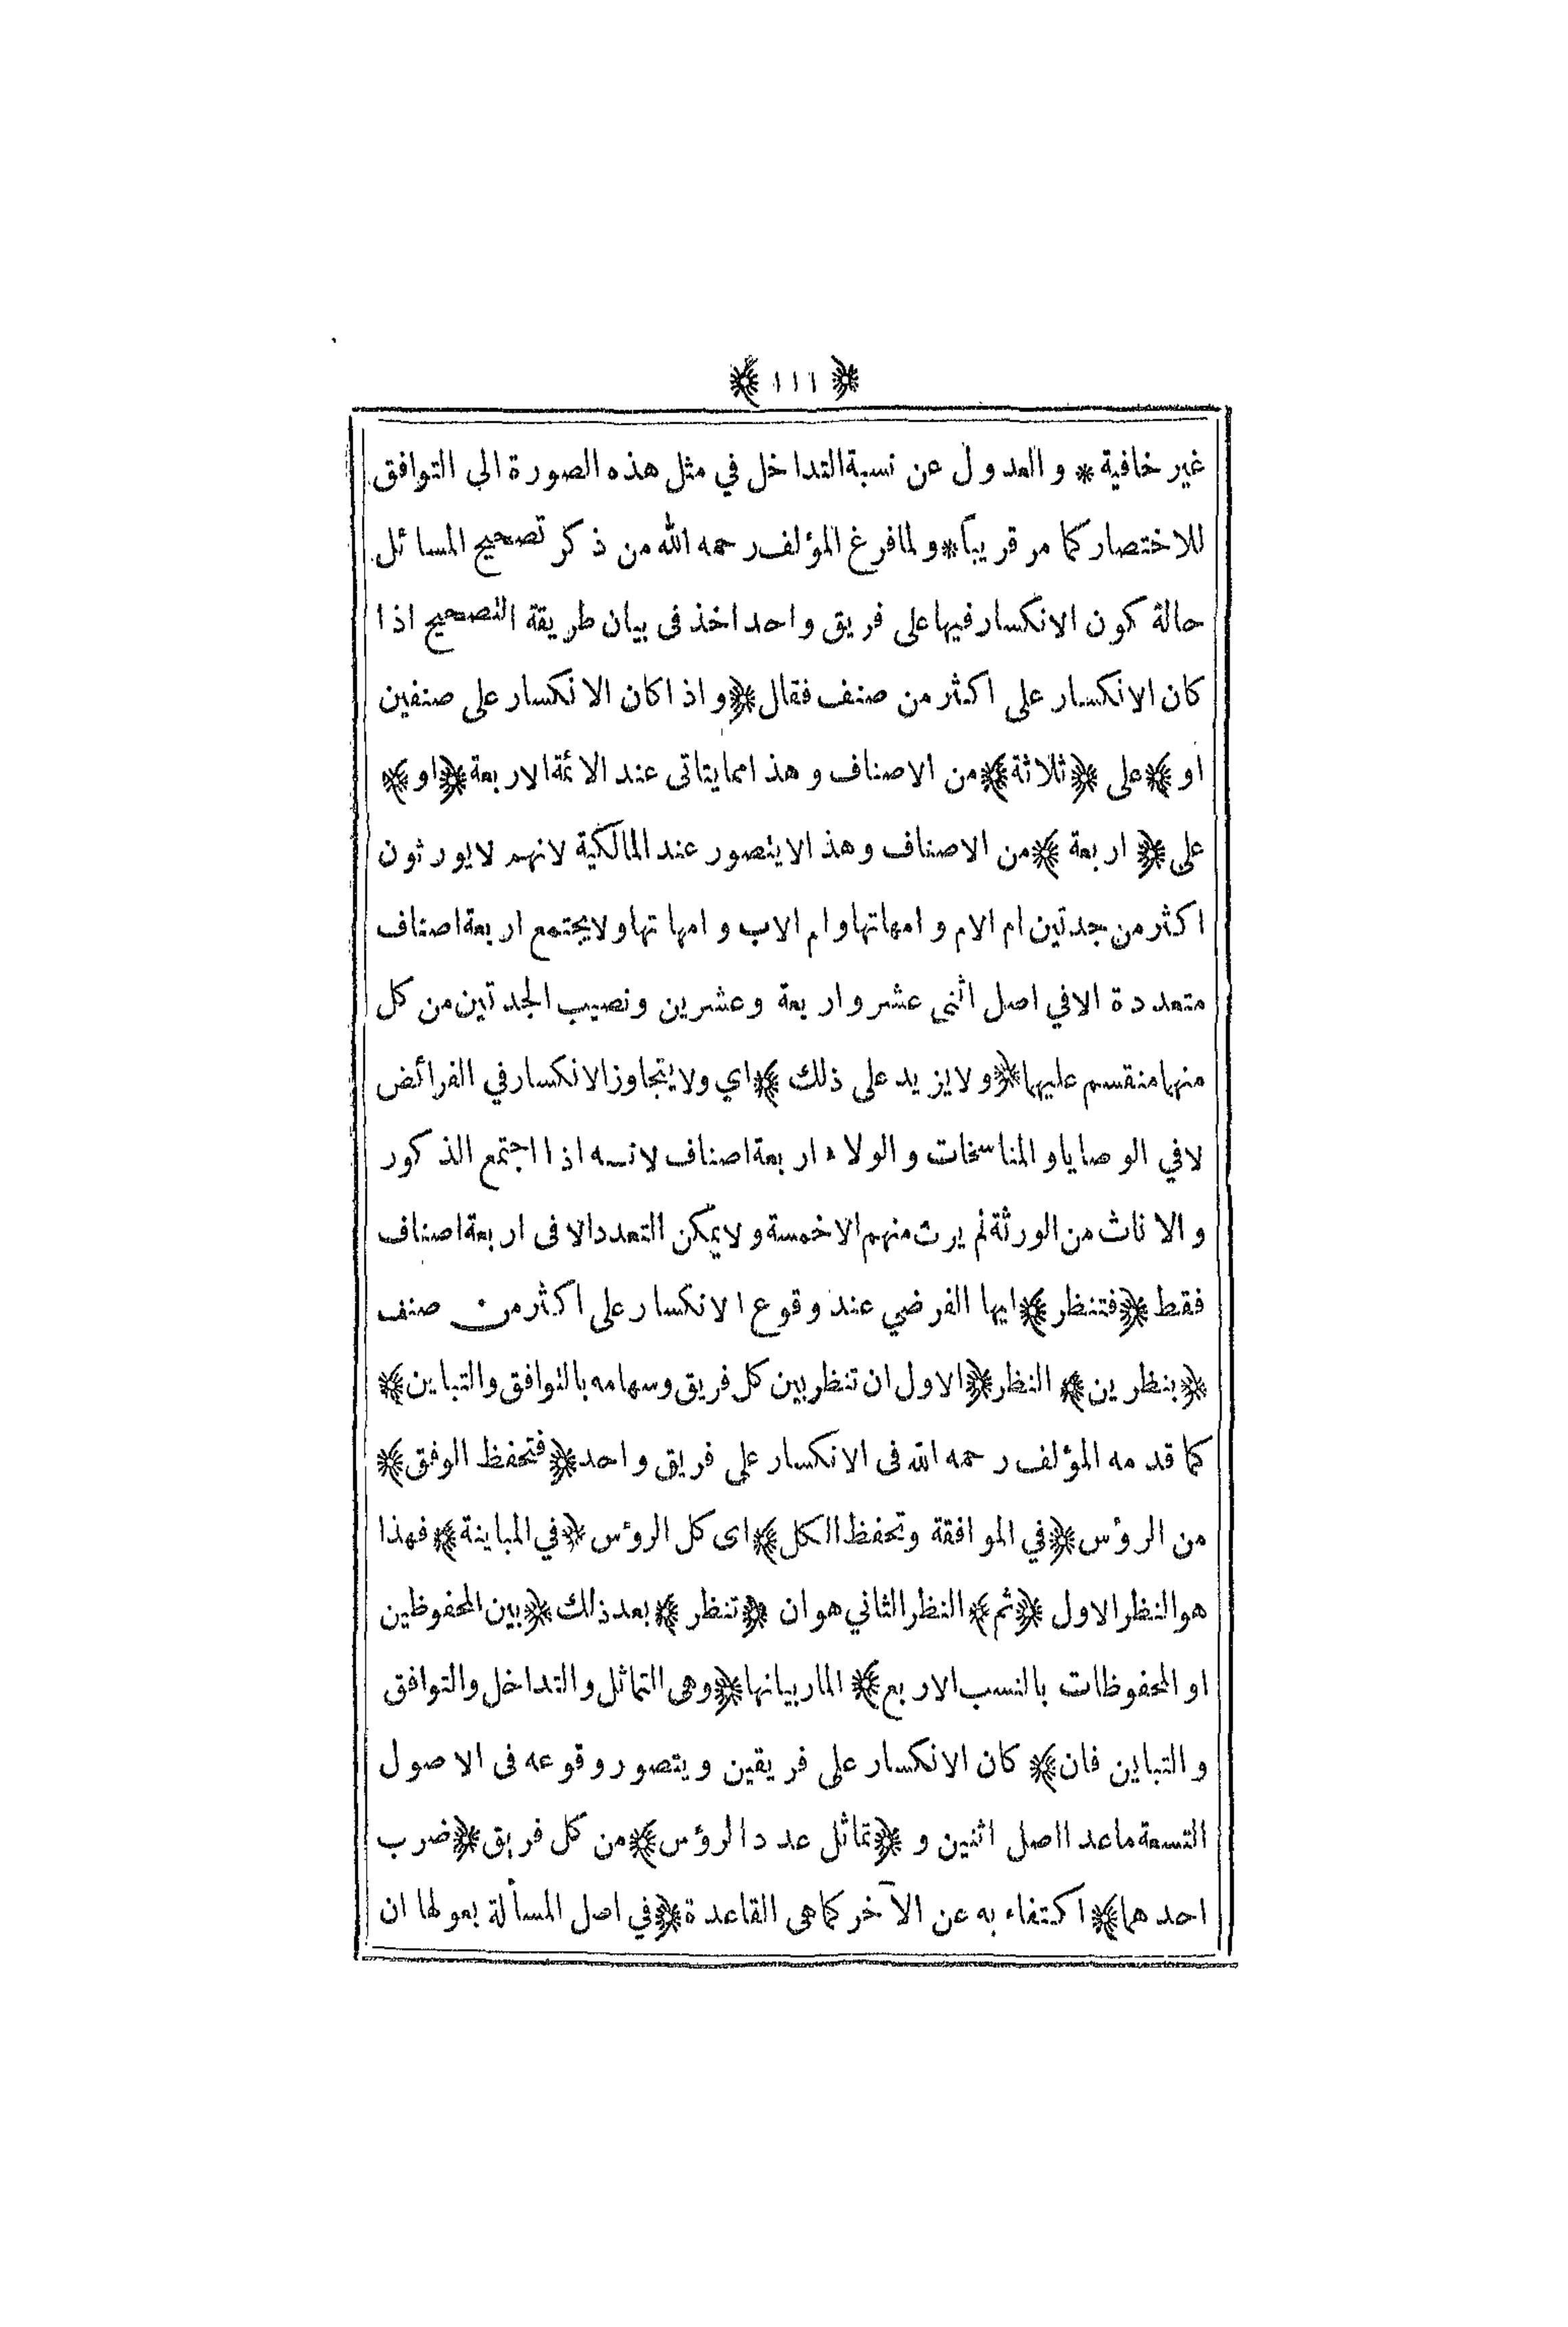 ﴿ ١١١ ﴾
غير خافية * والعدول عن نسبة التداخل في مثل هذه الصورة الي التوافق
للاختصار كما مر قريباً * ولما فرغ المؤلف رحمه الله من ذكر تصحيح المسائل
حالة كون الانكسار فيها على فريق واحد اخذ فى بيان طريقة التصحيح اذا
كان الانكسار على اكثر من صنف فقال ﴿ واذا كان الانكسار على صنفين
او ﴾ على ﴿ ثلاثة ﴾ من الاصناف وهذا مما يتاتى عند الائمة الاربعة ﴿ او ﴾
على ﴿ اربعة ﴾ من الاصناف وهذا لا يتصور عند المالكية لانهم لا يورثون
اكثر من جدتين ام الام وامهاتها وام الاب وامهاتها ولا يجتمع اربعة اصناف
متعددة الا في اصل اثنى عشر واربعة وعشرين ونصيب الجدتين من كل
منهما منقسم عليهما ﴿ ولا يزيد على ذلك ﴾ اي ولا يتجاوز الانكسار في الفرائض
لا في الوصايا والمناسخات والولاء اربعة اصناف لانه اذا اجتمع الذكور
والاناث من الورثة لم يرث منهم الا خمسة ولا يمكن التعدد الا فى اربعة اصناف
فقط ﴿ فتنظر ﴾ ايها الفرضي عند وقوع الانكسار على اكثر من صنف
﴿ بنظرين ﴾ النظر ﴿ الاول ان تنظر بين كل فريق وسهامه بالتوافق والتباين ﴾
كما قدمه المؤلف رحمه الله فى الانكسار على فريق واحد ﴿ فتحفظ الوفق ﴾
من الرؤس ﴿ في الموافقة وتحفظ الكل ﴾ اى كل الرؤس ﴿ في المباينة ﴾ فهذا
هو النظر الاول ﴿ ثم ﴾ النظر الثاني هو ان ﴿ تنظر ﴾ بعد ذلك ﴿ بين المحفوظين
او المحفوظات بالنسب الاربع ﴾ المار بيانها ﴿ وهى التماثل والتداخل والتوافق
والتباين فان ﴾ كان الانكسار على فريقين ويتصور وقوعه فى الاصول
التسعة ما عدا اصل اثنين و ﴿ تماثل عدد الرؤس ﴾ من كل فريق ﴿ ضرب
احدهما ﴾ اكتفاء به عن الآخر كما هى القاعدة ﴿ في اصل المسألة بعولها ان